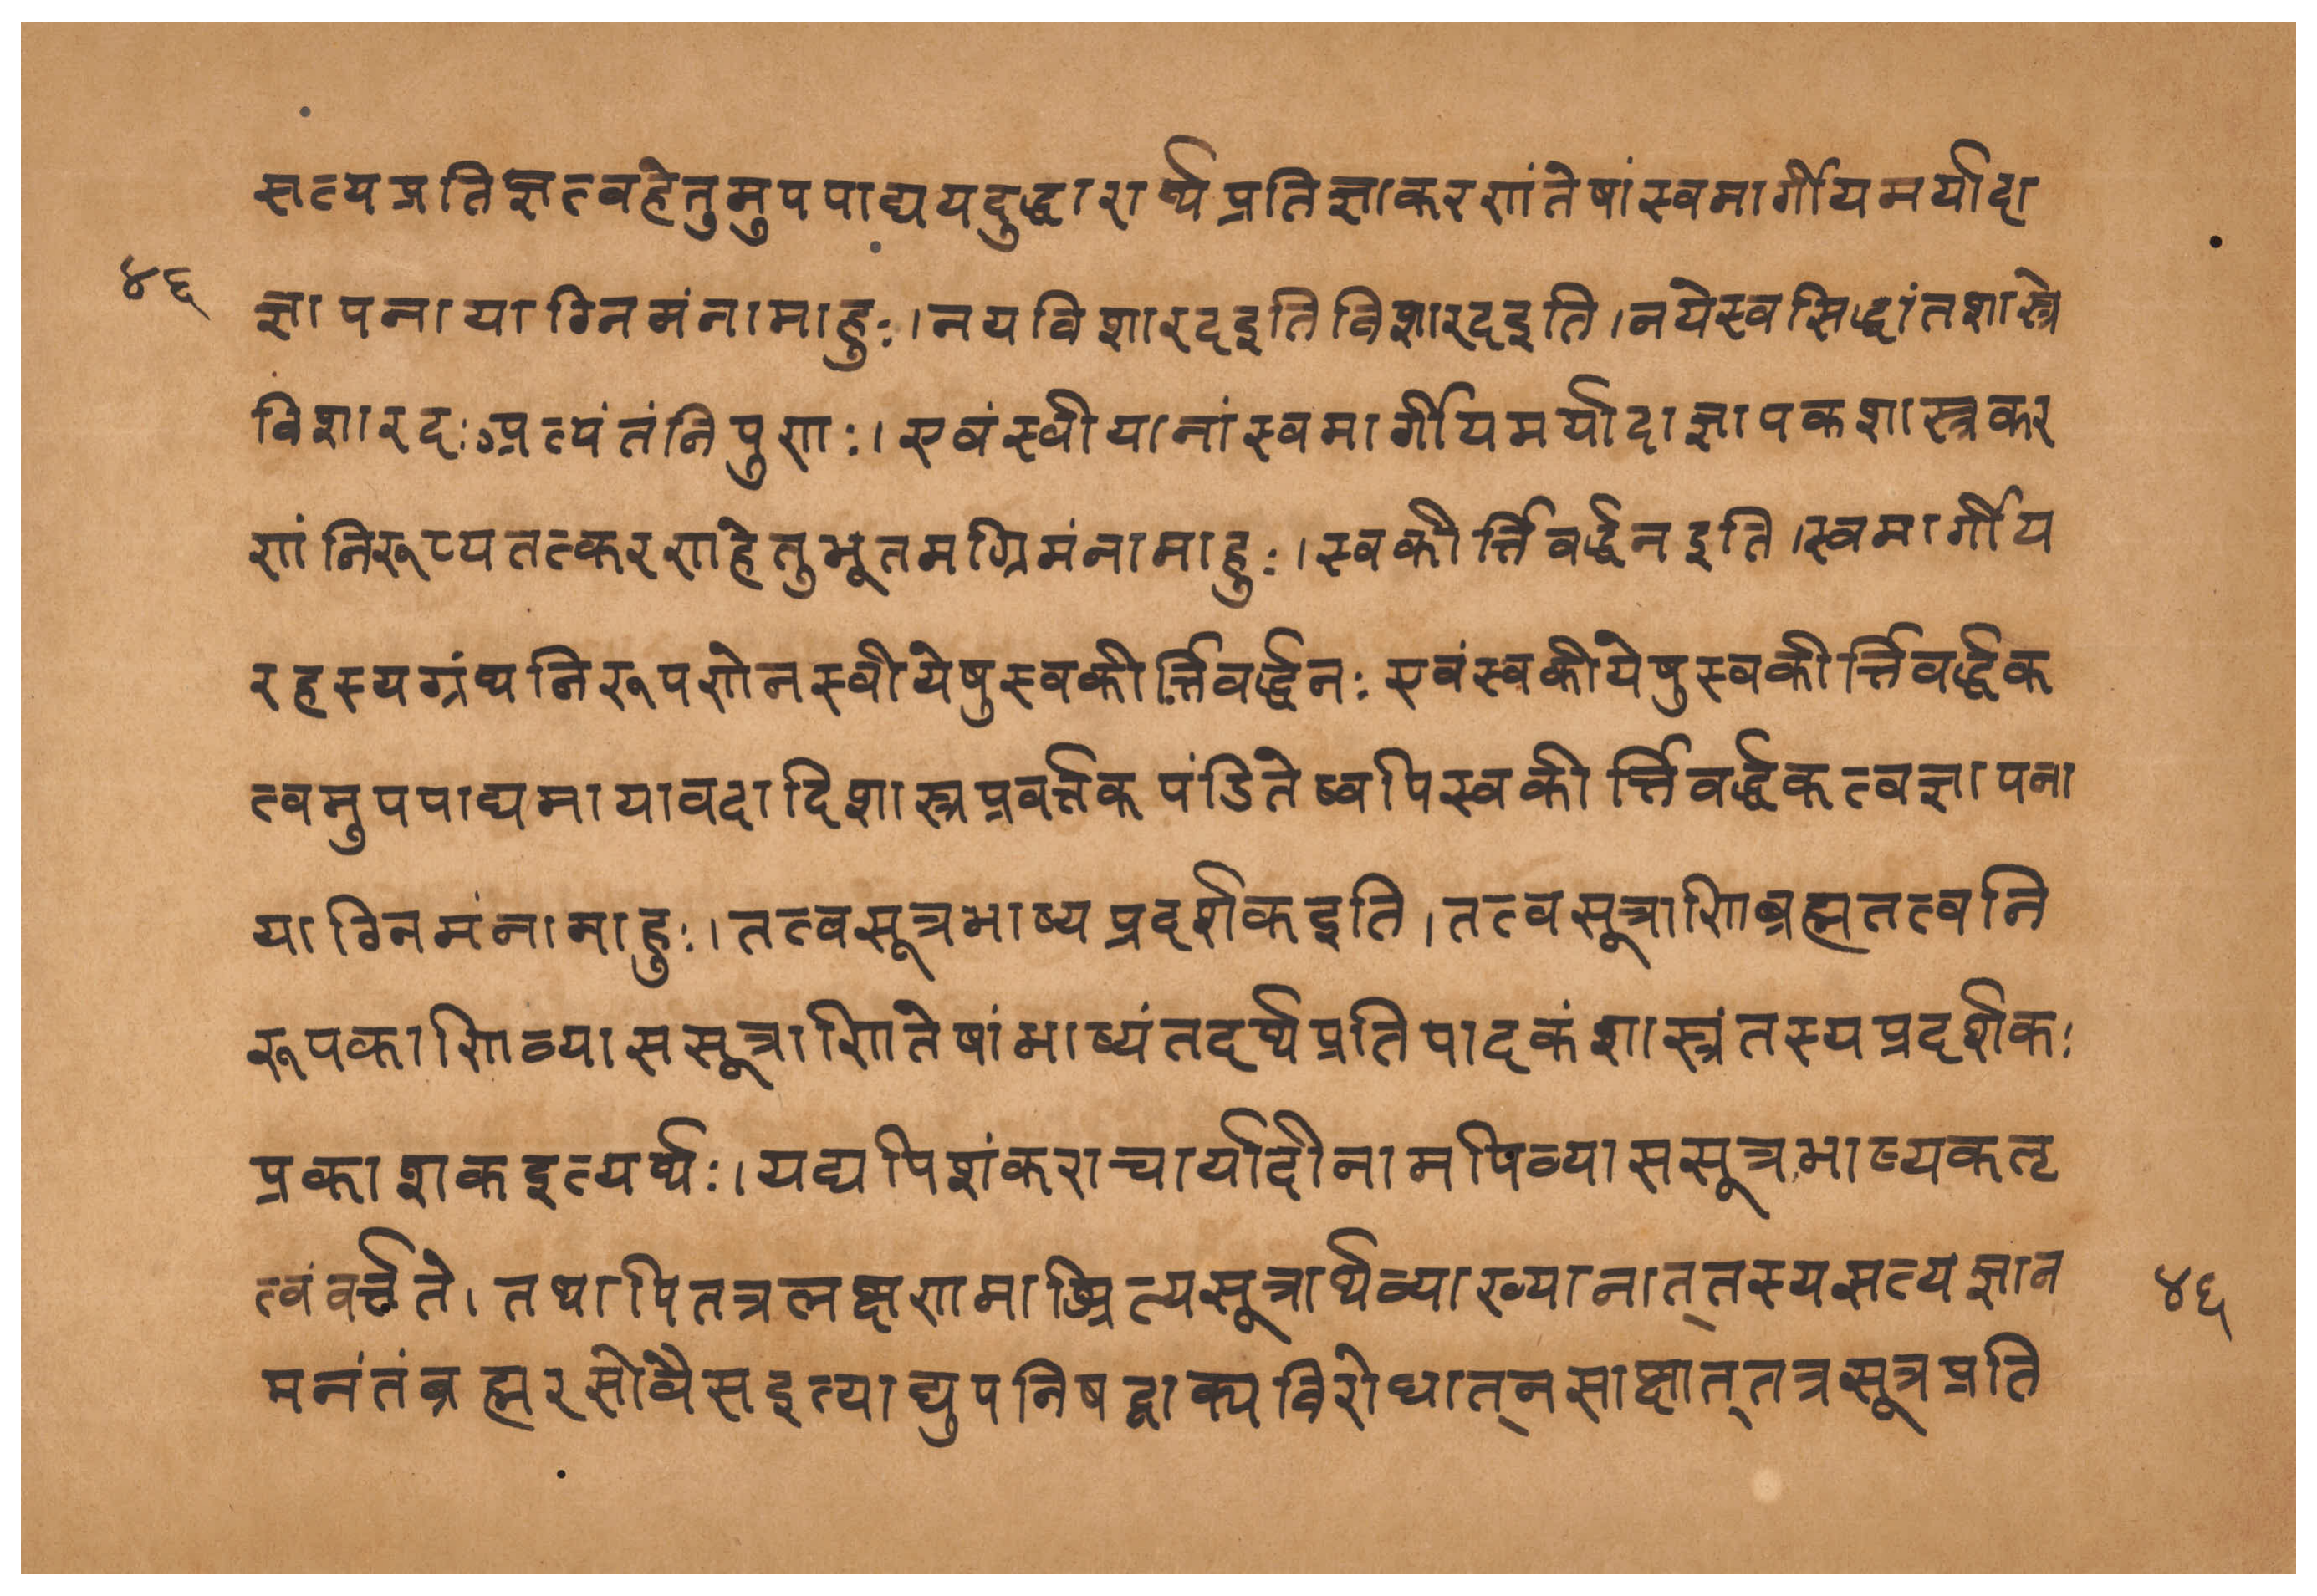 सत्यप्रतिज्ञत्वहेतुमुपपाद्ययदुद्धारार्थप्रतिज्ञाकरणंतेषांस्वमार्गीयमर्यादा
४६
ज्ञापनायाग्निमंनामाहुः।नयविशारदइतिविशारदइति।नयेस्वसिद्धांतशास्त्रे
विशारदःऽप्रत्यंतंनिपुणः।एवंस्वीयानांस्वमार्गीयमर्यादाज्ञापकशास्त्रकर
णंनिरूप्यतत्करणहेतुभूतमग्रिमंनामाहुः।स्वकीर्त्तिवर्द्धनइति।स्वमार्गीय
रहस्यग्रंथनिरूपणेनस्वीयेषुस्वकीर्त्तिवर्द्धनः एवंस्वकीयेषुस्वकीर्त्तिवर्द्धक
त्वमुपपाद्यमायावदादिशास्त्रप्रवर्त्तकपंडितेष्वपिस्वकीर्त्तिवर्द्धकत्वज्ञापना
याग्निमंनामाहुः।तत्वसूत्रभाष्यप्रदर्शकइति।तत्वसूत्राणिब्रह्मतत्वनि
रूपकाणिव्याससूत्राणितेषांभाष्यंतदर्थप्रतिपादकंशास्त्रंतस्यप्रदर्शकः
प्रकाशकइत्यर्थः।यद्यपिशंकराचार्यादीनामपिव्याससूत्रभाष्यकतृ
त्वंवर्त्तते।तथापितत्रलक्षणामाश्रित्यसूत्रार्थव्याख्यानात्तस्यसत्यज्ञान
४६
मनंतंब्रह्मरसोवैसइत्याद्युपनिषद्वाक्यविरोधात्नसाक्षात्तत्रसूत्रप्रति